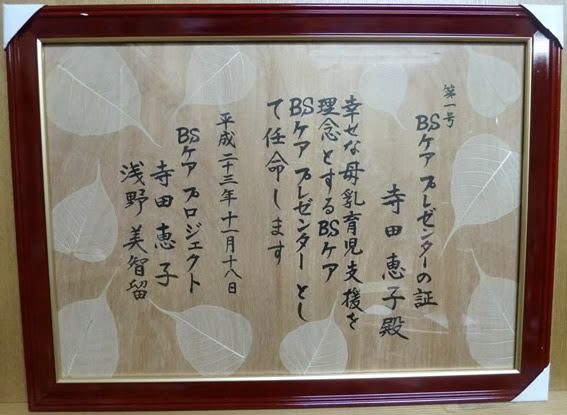 第一号
BSケア プレゼンターの証
寺田恵子殿
幸せな母乳育児支援を
理念とするBSケア
BSケア プレゼンターとし
て任命します
平成二十三年十一月十八日
BSケア プロジェクト
寺田恵子
浅野美智留